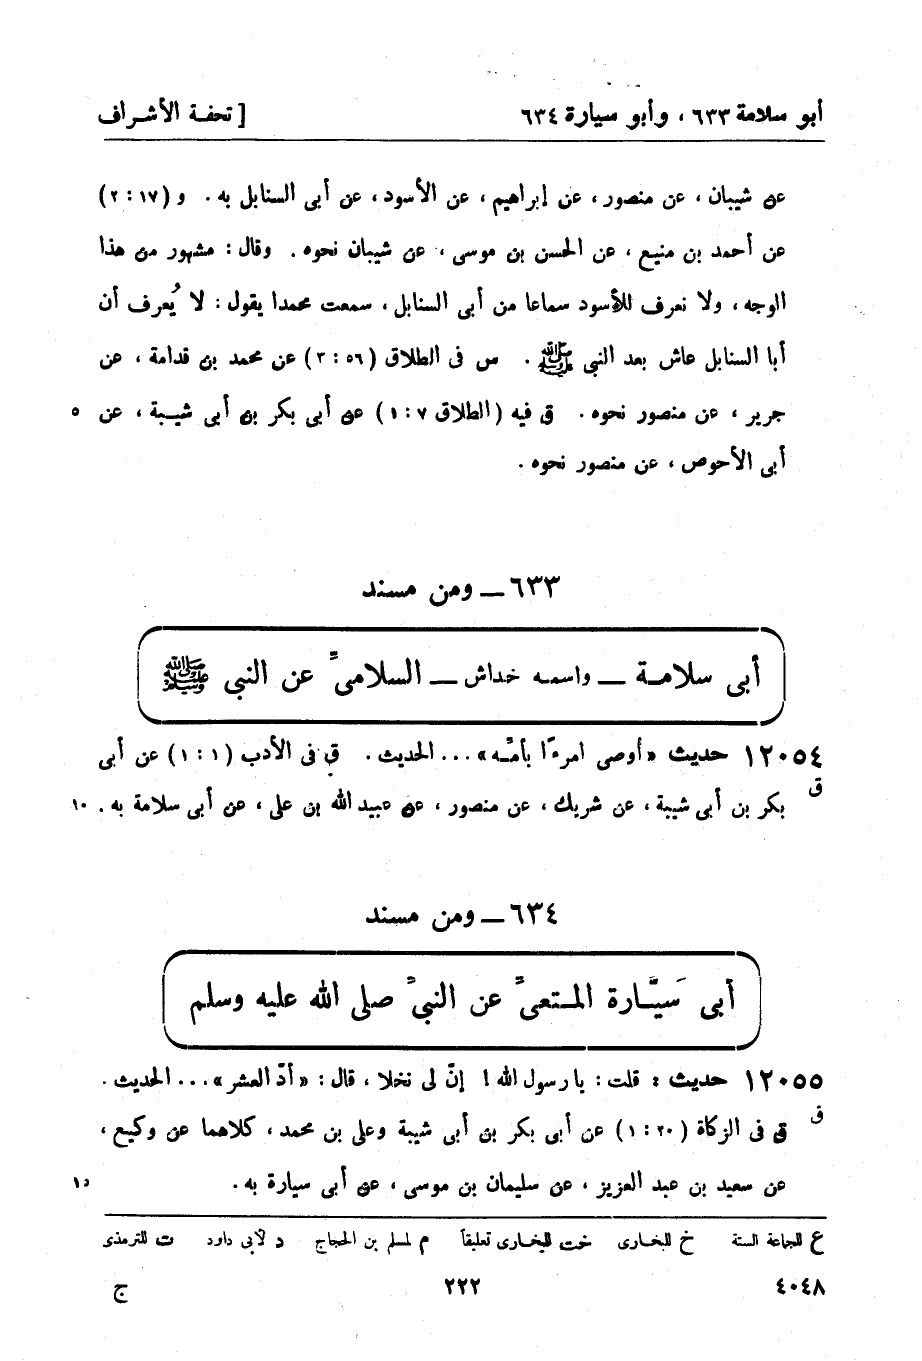 أبو سلامة ٦٣٣ ، وأبو سيارة ٦٣٤ [ تحفـة الأشـراف
عن شيبان ، عن منصور ، عن إبراهيم ، عن الأسود ، عن أبى السنابل به . و (١٧ : ٢)
عن أحمد بن منيع ، عن الحسن بن موسى ، عن شيبان نحوه . وقال : مشهور من هذا
الوجه ، ولا نعرف للأسود سماعا من أبى السنابل ، سمعت محمدا يقول : لا يُعرف أن
أبا السنابل عاش بعد النبى ﷺ . س فى الطلاق (٥٦ : ٣) عن محمد بن قدامة ، عن
جرير ، عن منصور نحوه . ق فيه (الطلاق ٧ : ١) عن أبى بكر بن أبى شيـبة ، عن ٥
أبى الأحوص ، عن منصور نحوه .
٦٣٣ ــ ومن مسند
أبى سلامـة ــ واسمـه خداش ــ السلامىّ عن النبى ﷺ
١٢٠٥٤ حديث «أوصى امرءًا بأمّـه» ... الحديث . ق فى الأدب (١ : ١) عن أبى
ق
بكر بن أبى شيبة ، عن شريك ، عن منصور ، عن عبيد الله بن على ، عن أبى سلامة به . ١٠
٦٣٤ ــ ومن مسند
أبى سَيَّـارة المـتعىّ عن النبىّ صلى الله عليه وسلم
١٢٠٥٥ حديث : قلت : يا رسول الله ! إنّ لى نخلا ، قال : «أدّ العشر» ... الحديث .
ق
ق فى الزكاة (٢٠ : ١) عن أبى بكر بن أبى شيبة وعلى بن محمد ، كلاهما عن وكيع ،
عن سعيد بن عبد العزيز ، عن سليمان بن موسى ، عن أبى سيارة به . ١٥
ع للجاعة الستة خ للبخـارى خت للبخـارى تعليقاً م لمسلم بن الحجاج د لأبى داود ت للترمذى
٤٠٤٨ ٢٢٢ ج